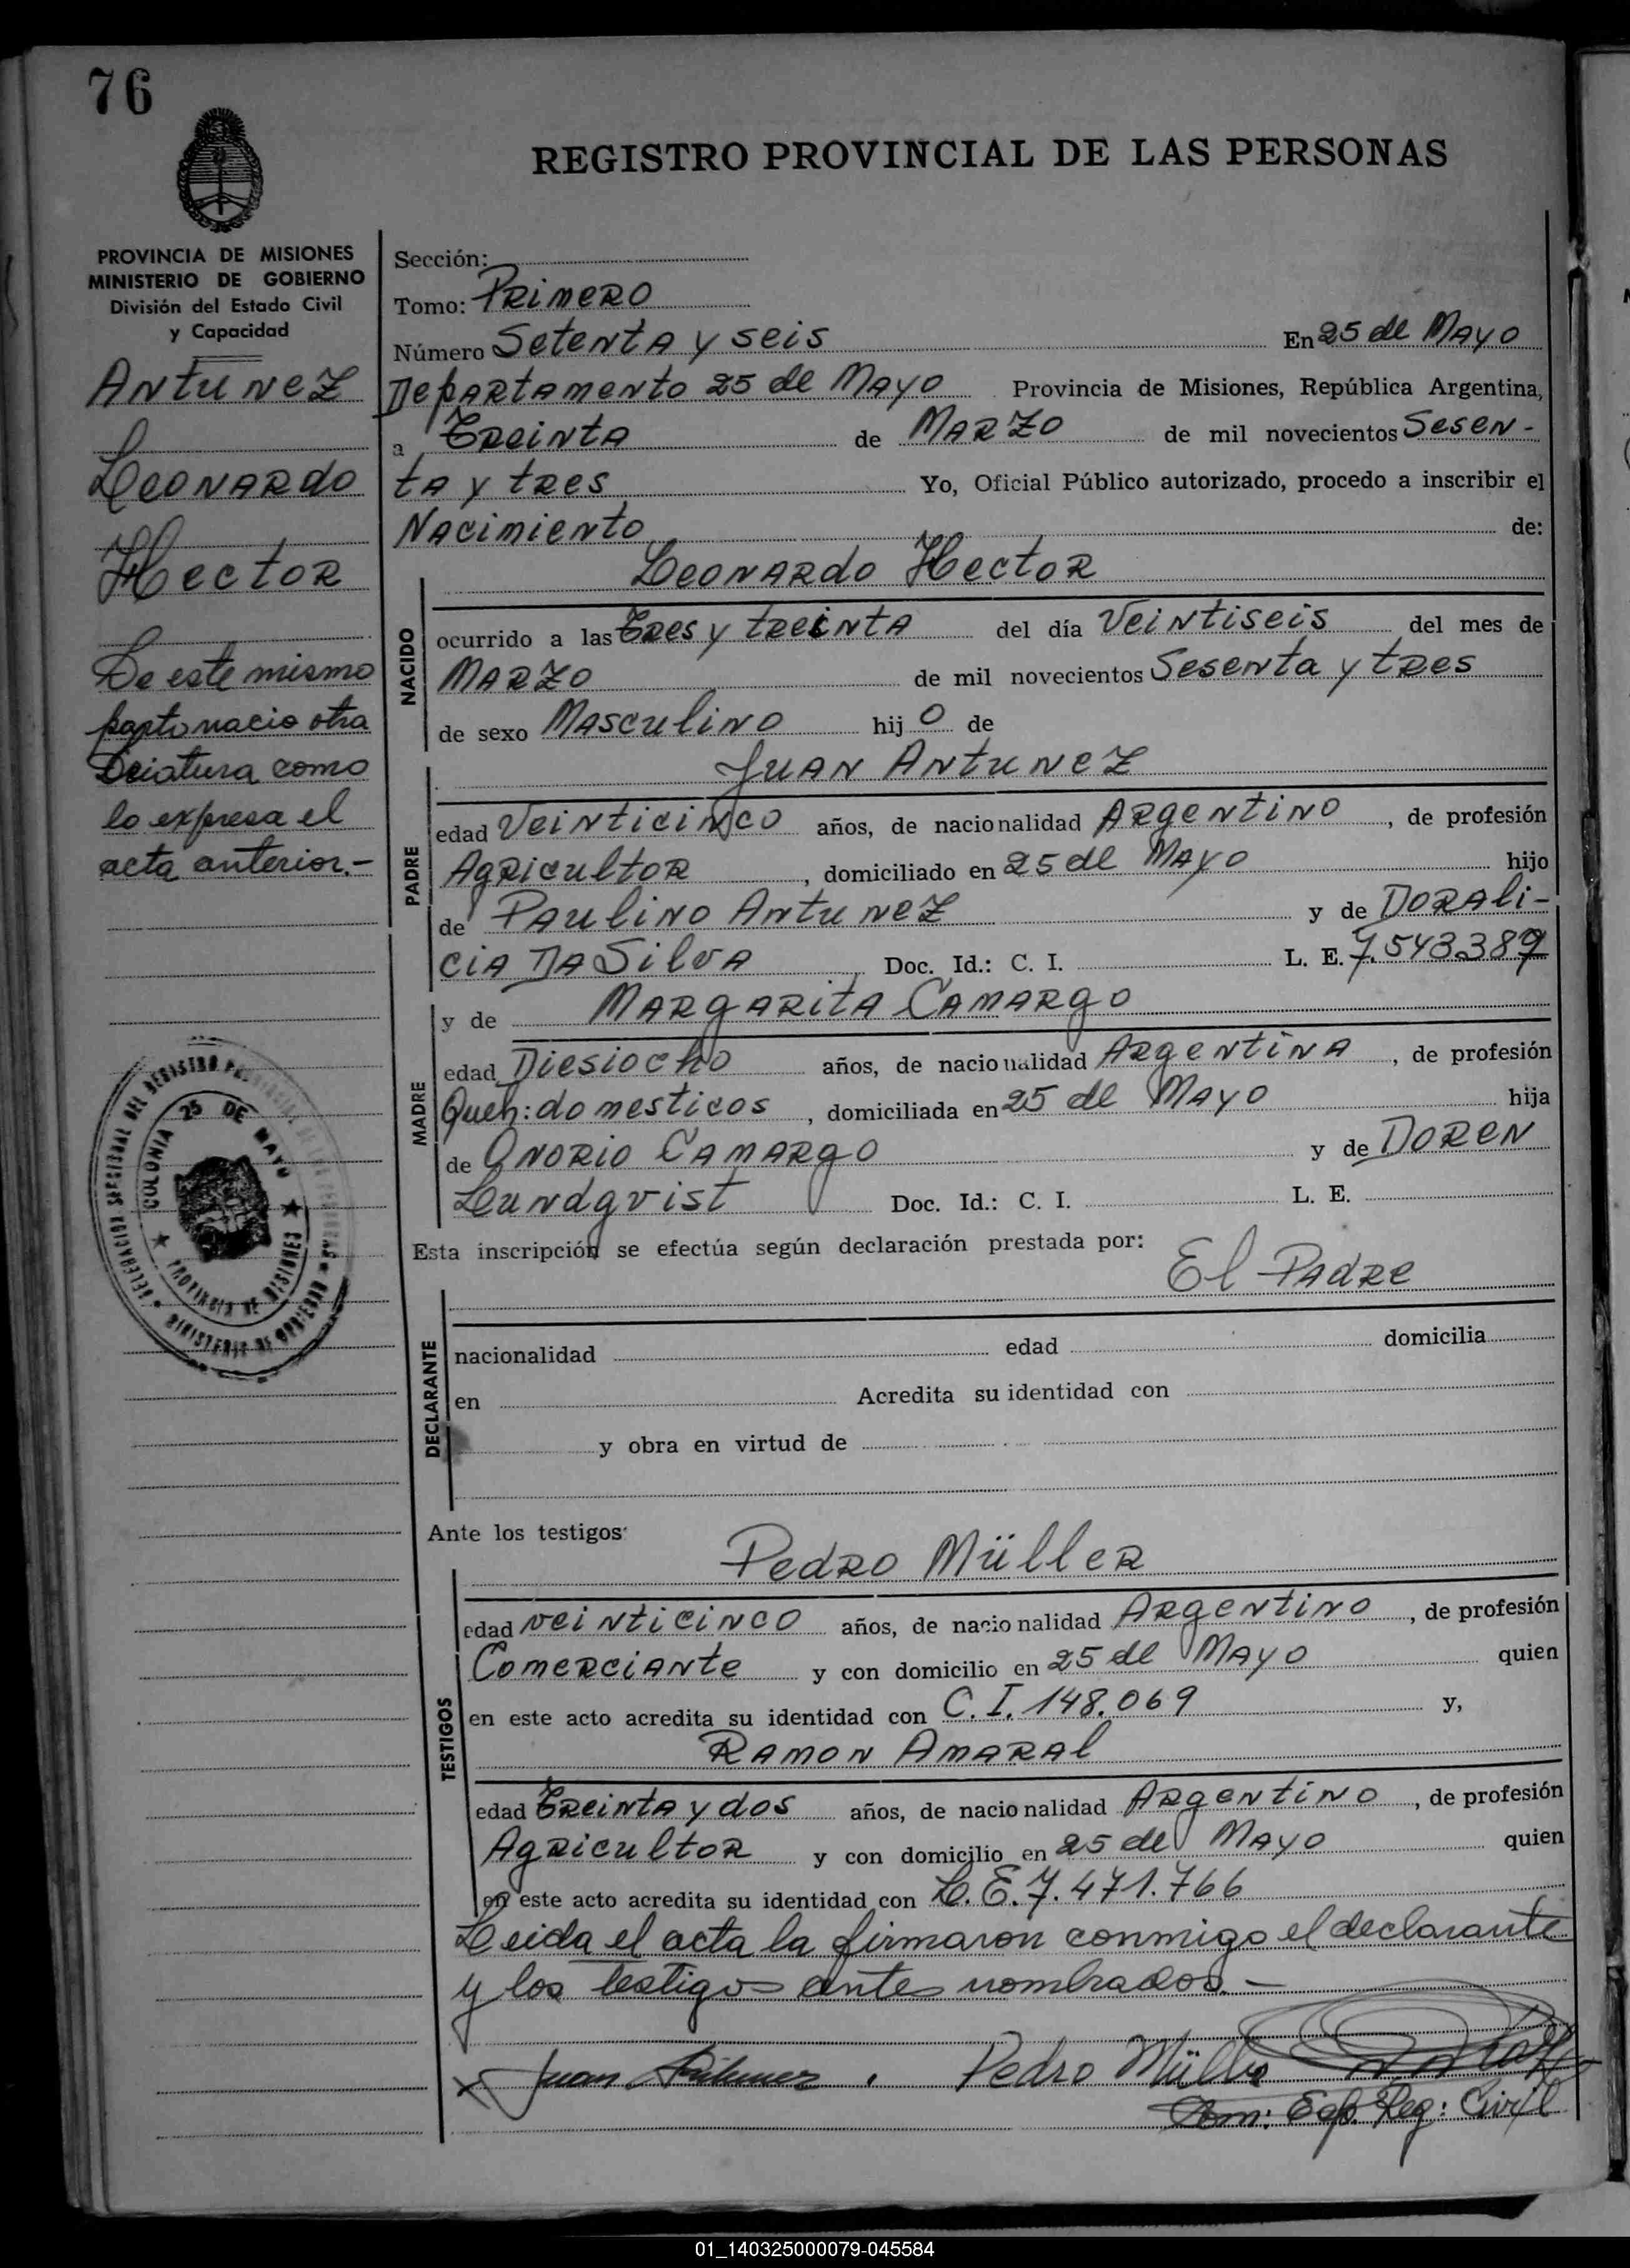 76
REGISTRO PROVINCIAL DE LAS PERSONAS
PROVINCIA DE MISIONES
MINISTERIO DE GOBIERNO
División del Estado Civil
y Capacidad
Antunez
Leonardo
Hector
De este mismo
parto nacio otra
criatura como
lo expresa el
acta anterior.-
COLONIA 25 DE MAYO
PROVINCIA DE MISIONES
MINISTERIO DE GOBIERNO
Sección:
Tomo: Primero
Número Setenta y seis En 25 de Mayo
Departamento 25 de Mayo Provincia de Misiones, República Argentina,
a Treinta de Marzo de mil novecientos Sesen-
ta y tres Yo, Oficial Público autorizado, procedo a inscribir el
Nacimiento de:
Leonardo Hector
NACIDO
ocurrido a las Tres y treinta del día Veintiseis del mes de
Marzo de mil novecientos Sesenta y tres
de sexo Masculino hijo de
Juan Antunez
PADRE
edad Veinticinco años, de nacionalidad Argentino, de profesión
Agricultor, domiciliado en 25 de Mayo hijo
de Paulino Antunez y de Dorali-
cia Da Silva Doc. Id.: C. I. L. E. 7.543.389
y de Margarita Camargo
MADRE
edad Diesiocho años, de nacionalidad Argentina, de profesión
Queh: domesticos, domiciliada en 25 de Mayo hija
de Onorio Camargo y de Doren
Lundqvist Doc. Id.: C. I. L. E.
Esta inscripción se efectúa según declaración prestada por:
El Padre
DECLARANTE
nacionalidad edad domicilia
en Acredita su identidad con
y obra en virtud de
Ante los testigos:
Pedro Müller
TESTIGOS
edad veinticinco años, de nacionalidad Argentino, de profesión
Comerciante y con domicilio en 25 de Mayo quien
en este acto acredita su identidad con C. I. 148.069 y,
Ramon Amaral
edad Treinta y dos años, de nacionalidad Argentino, de profesión
Agricultor y con domicilio en 25 de Mayo quien
en este acto acredita su identidad con L. E. 7.471.766
Leida el acta la firmaron conmigo el declarante
y los testigos ante nombrados.-
x Juan Antunez. Pedro Müller
Reg: Civil
01_140325000079-045584